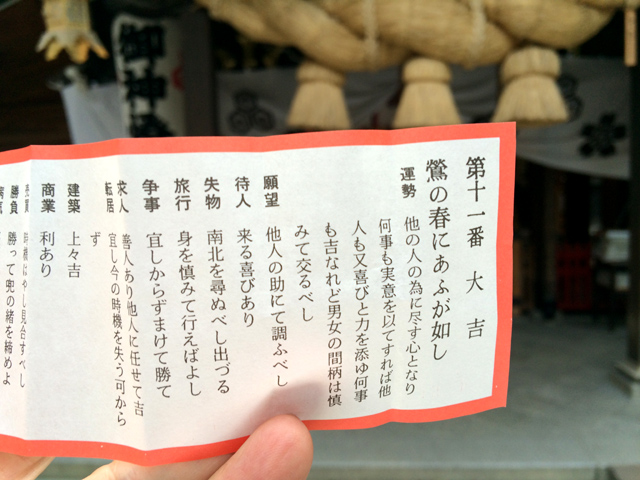 第十一番 大吉
鶯の春にあふが如し
運勢 他の人の為に尽す心となり
何事も実意を以てすれば他
人も又喜びと力を添ゆ何事
も吉なれど男女の間柄は慎
みて交るべし
願望 他人の助にて調ふべし
待人 来る喜びあり
失物 南北を尋ぬべし出づる
旅行 身を慎みて行えばよし
争事 宜しからずまけて勝て
求人 善人あり他人に任せて吉
転居 宜し今の時機を失う可から
ず
建築 上々吉
商業 利あり
売買 時機はやし見合すべし
勝負 勝って兜の緒を締めよ
御神